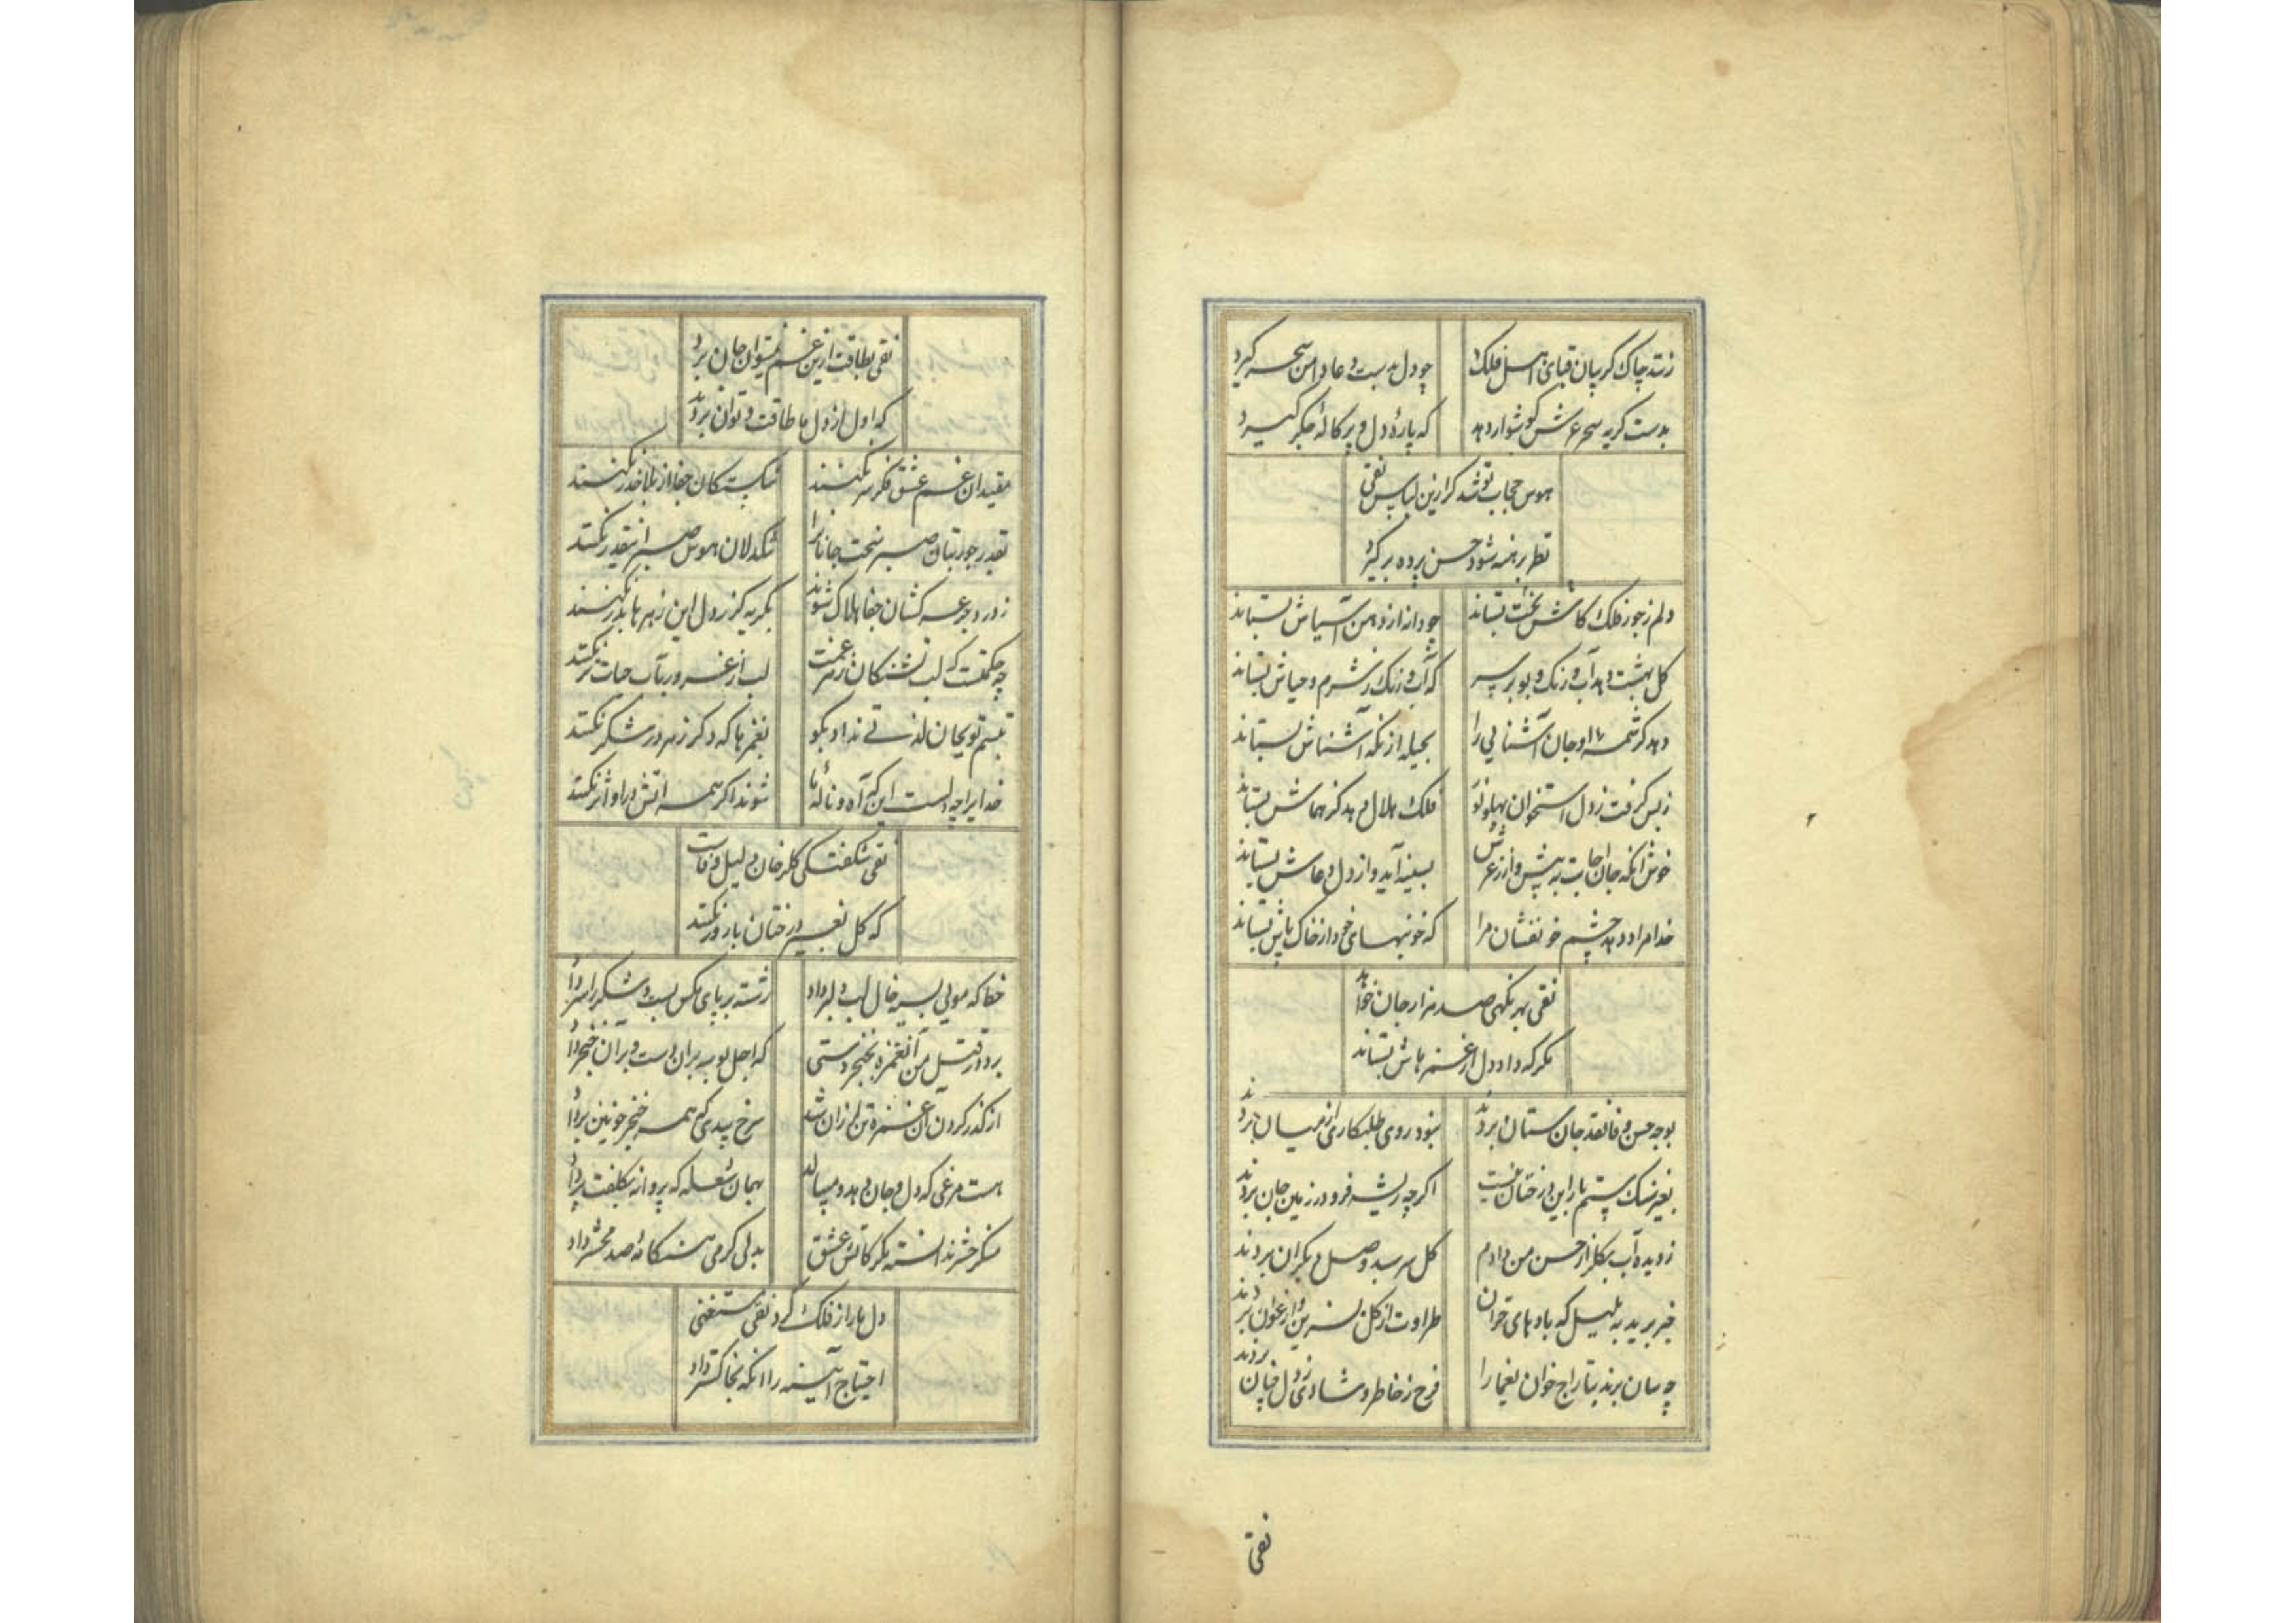 زند چاک گریبان قبای اهل فلک
چو دل بدست دعا دامن سحر گیرد
بدست گریه سحر عرش گوشوار دهد
که پارهٔ دل و پرکالهٔ جگر گیرد
هوس حجاب تو شد گر ازین لباس نقی
نظر برهنه شود حسن پرده برگیرد
دلم ز جور فلک کاش بخت بستاند
چو دانه از دهن آسیاش بستاند
گل بهشت دهد آب و رنگ و بو بر سر
که آب و رنگ ز شرم و حیاش بستاند
دهد کرشمهٔ او جان آشنایی را
بحیله از نگه آشناش بستاند
ز بس گرفت ز دل استخوان پهلو نو
فلک هلال دهد کز هماش بستاند
خوش انکه جان اجابت به پیش واز زعرش
بسینه آید و از دل دعاش بستاند
خدا مراد دهد چشم خونفشان مرا
که خونبهای خود از خاک پاش بستاند
نقی بهر نگهی صد هزار جان خواهد
مگر که داد دل از غمزهاش بستاند
بوجه حسن وفا نقد جان ستان بردند
نبود روی طلبکاری از میان بردند
بغیر سنگ ستم بار این درختان نیست
اگرچه ریشه فرو در زمین جان بردند
ز دیده آب بگلزار حسن من دادم
گل سرسبد وصل دیگران بردند
خبر برید به بلبل که بادهای خزان
طراوت از گل نسرین و ارغوان بردند
چسان برند بتاراج خوان یغما را
فرح ز خاطر و شادی ز دل چنان بردند
نقی
نقی بطاقت ازین غم نمیتوان جان برد
که اول از دل ما طاقت و توان بردند
مقیدان غم عشق فکر سر نکنند
شکستگان جفا از بلا حذر نکنند
بقدر جور بتان صبر نیست جانانرا
سنگدلان هوس صبر اینقدر نکنند
ز درد جرعه کشان جفا هلاک شوند
بگریه کز دل این زهر ها بدر نکنند
چه حکمتست که لب تشنگان زهر غمت
لب از غرور بآب حیات تر نکنند
تبسم تو بجان لذتی نداد بگو
بغمزها که دگر زهر در شکر نکنند
خدایرا چه دلست این که آه و نالهٔ ما
شوند اگر همه آتش در او اثر نکنند
نقی شکفتگی گلرخان دلیل وفاست
که گل بغیر درختان بارور نکنند
خطا که مویی بسیه خال لب دلبر داد
رشته بر پای مگس بست و شکر را سر داد
برد در قتل من آن غمزه بخنجر دستی
که اجل بوسه بران دست و بران خنجر داد
از گذر کردن آن غمزه تن لرزان شد
سرخ بیدی که همه خنجر خونین بر داد
هست مرغی که دل و جان دهد و میسالد
بهمان شعله که پروانه بکلفت پر داد
منکر حشر ندانسته مگر کاتش عشق
بدلی گرمی هنگامهٔ صد محشر داد
دل ما را ز فلک کرد نقی مستغنی
احتیاج آینه را انکه بخاکستر داد